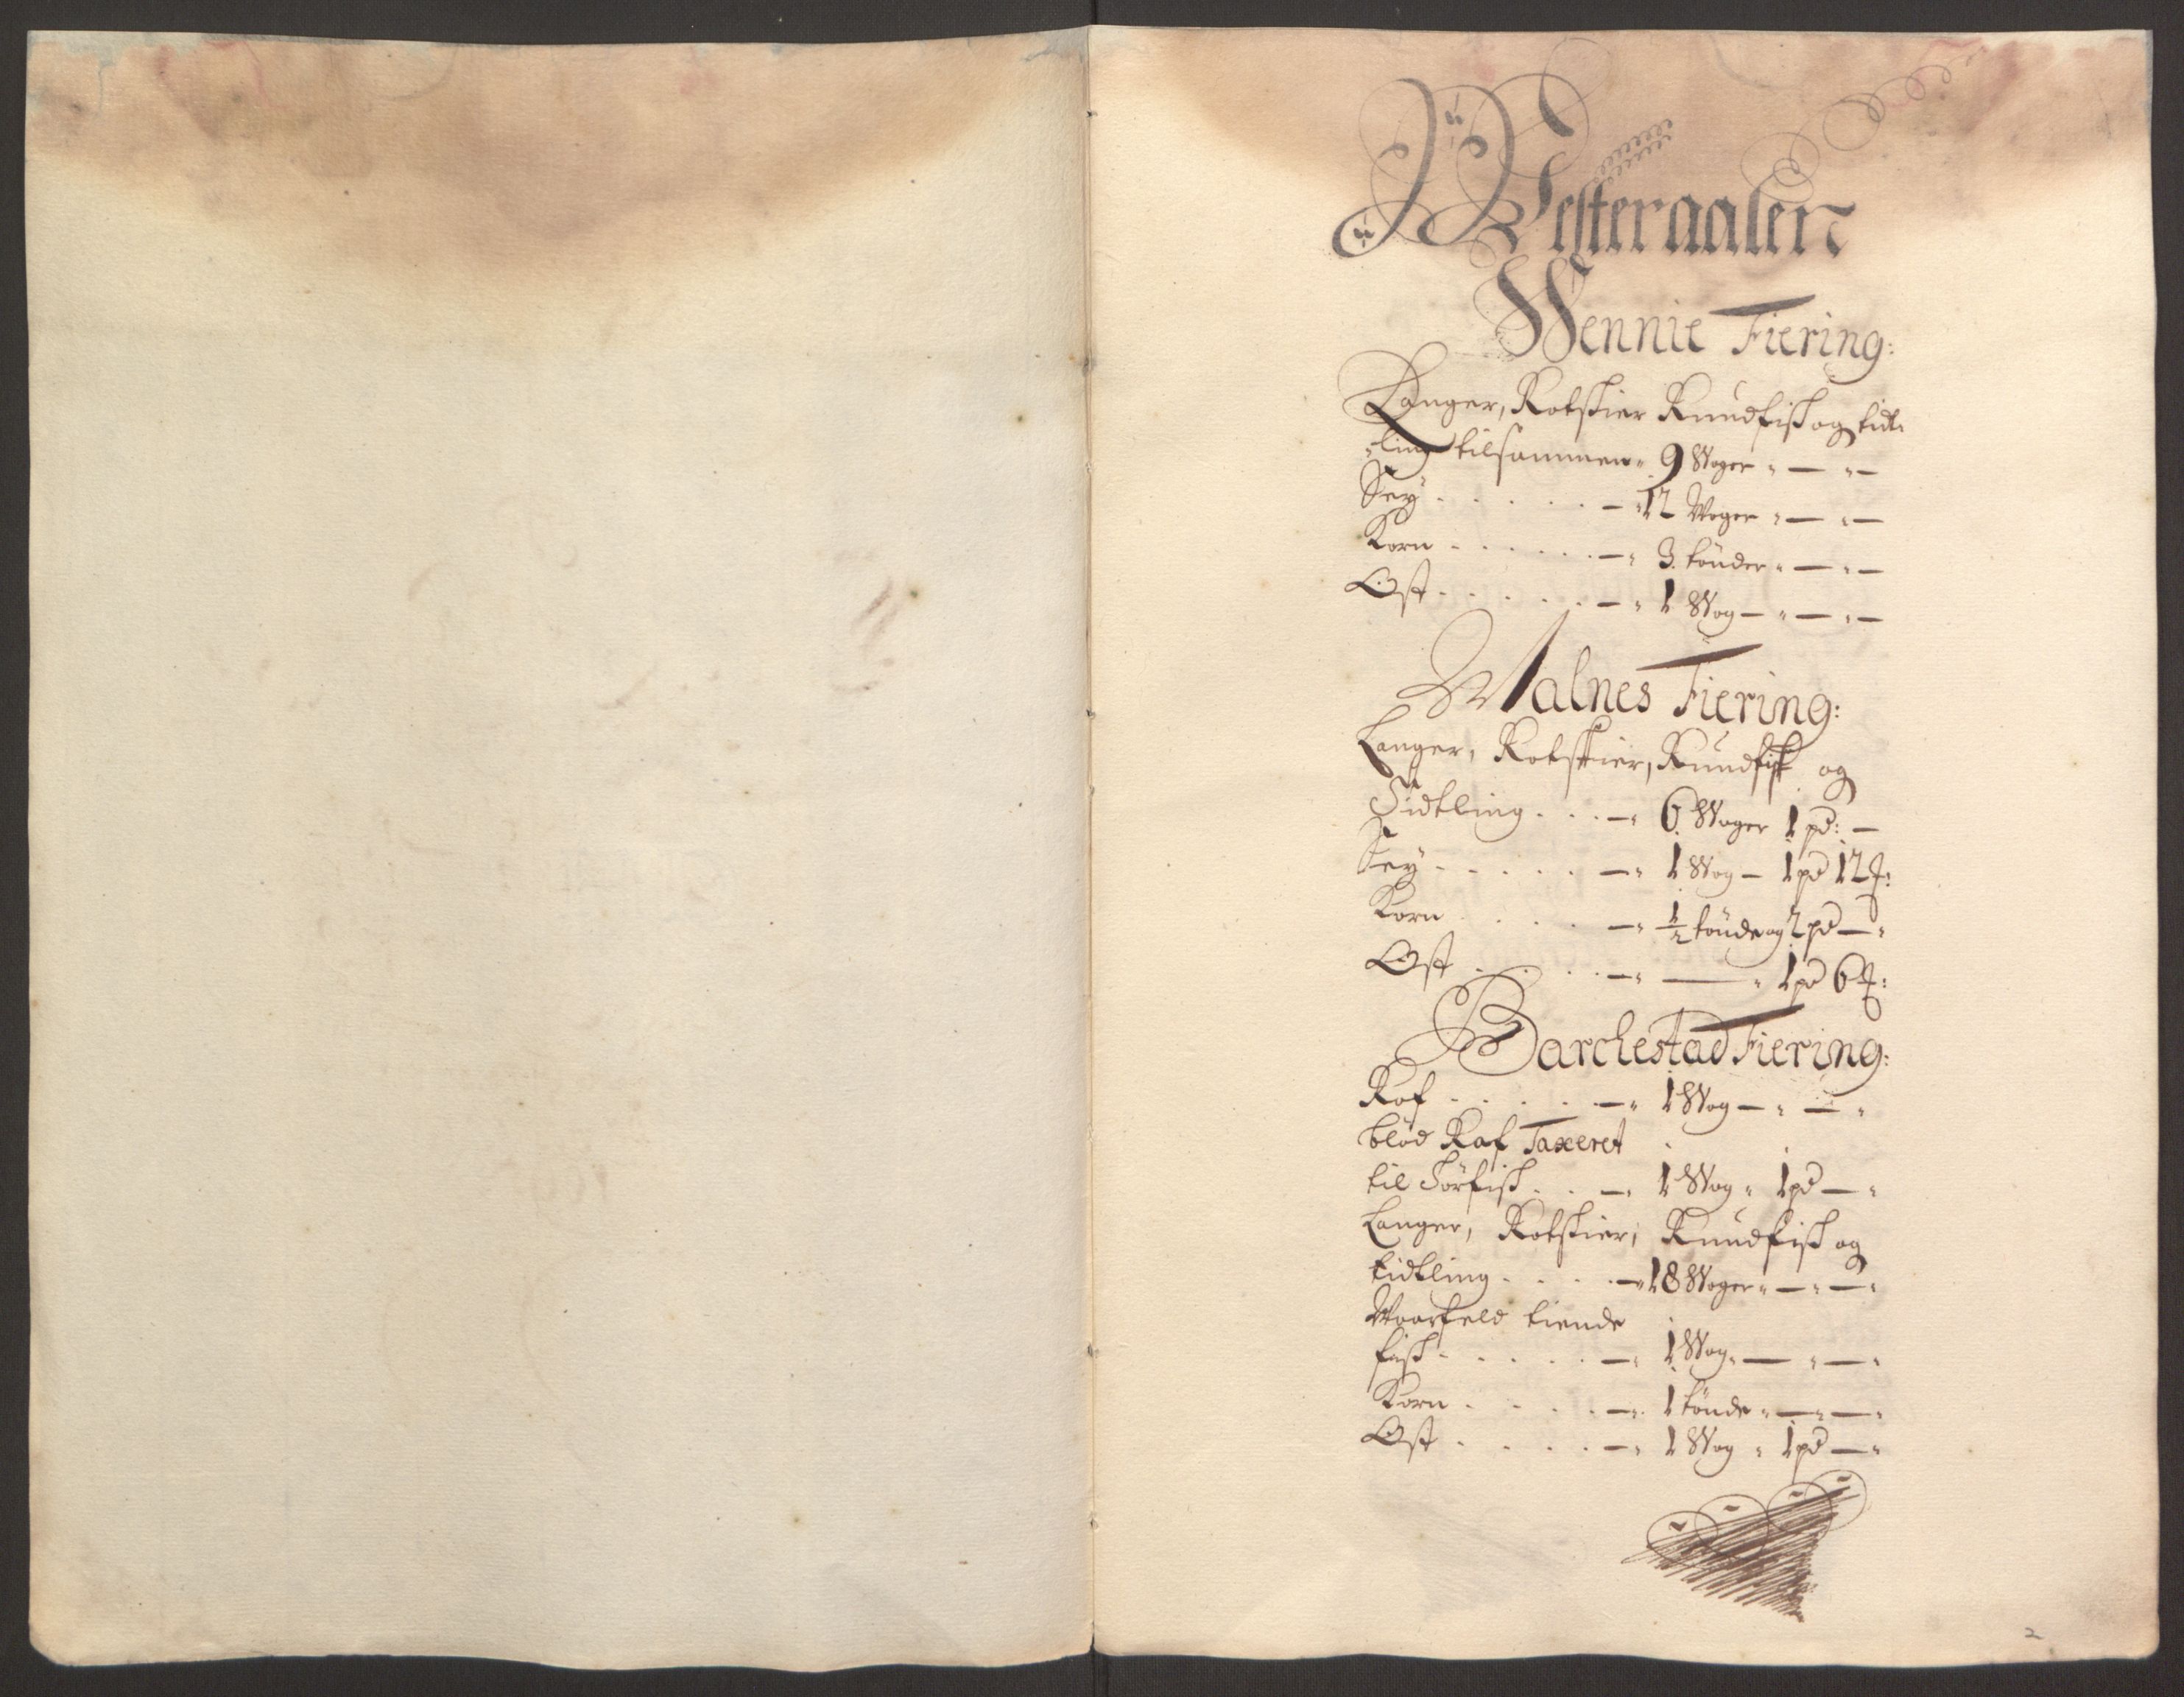 Westeraalen
Wennie Fiering:
Langer, Rotskier Rundfisk og tidt-
ling tilsammen 9 Woger „ — „ —
Sey . . . . . — „ 12 Woger „ — „ —
Korn . . . . . . — „ 3. tönder „ — „ —
Ost . . . . . — „ 1 Wog — „ — „ —
Malnes Fiering:
Langer, Rotskier, Rundfisk og
Tidtling . . . — „ 6. Woger 1 pd: —
Sey . . . . . — „ 1 Wog — 1 pd 12 ₰:
Korn . . . . — „ ½ tönde og 2 pd — „
Ost . . . . — „ — „ 1 pd 6 ₰:
Barchestad Fiering:
Raf . . . . . — „ 1 Wog — „ — „
blöd Raf Taxeret
til Törfisk . . — „ 1 Wog „ 1 pd — „
Langer, Rotskier, Rundfisk og
tidtling . . . . — „ 18 Woger „ — „ — „
Waarfeld tiende
fisk . . . . . — „ 1 Wog „ — „ — „
Korn . . . . — „ 1 tönde „ — „ — „
Ost . . . . — „ 1 Wog „ 1 pd — „
2